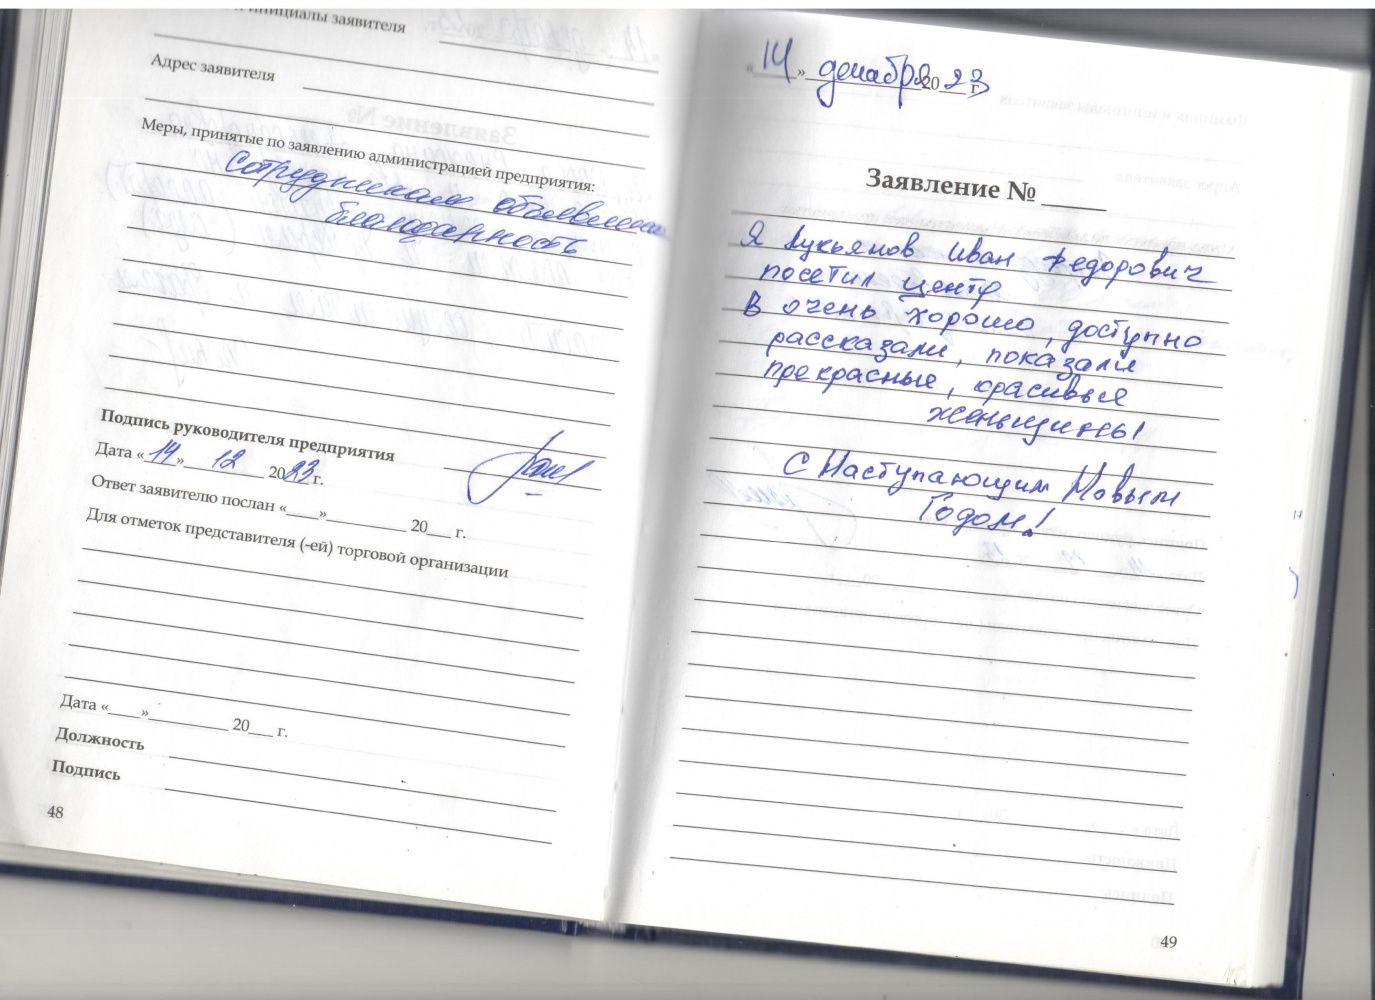 инициалы заявителя
Адрес заявителя
Меры, принятые по заявлению администрацией предприятия:
Сотрудникам объявлена
благодарность
Подпись руководителя предприятия
Дата «14» 12 2023 г.
Ответ заявителю послан «____»__________ 20___ г.
Для отметок представителя (-ей) торговой организации
Дата «____»__________ 20___ г.
Должность
Подпись
48
«14» декабря 2023 г.
Заявление № _____
Я Лукьянов Иван Федорович
посетил центр
В очень хорошо, доступно
рассказали, показали
прекрасные, красивые
женьщины
С Наступающим Новым
Годом!
49